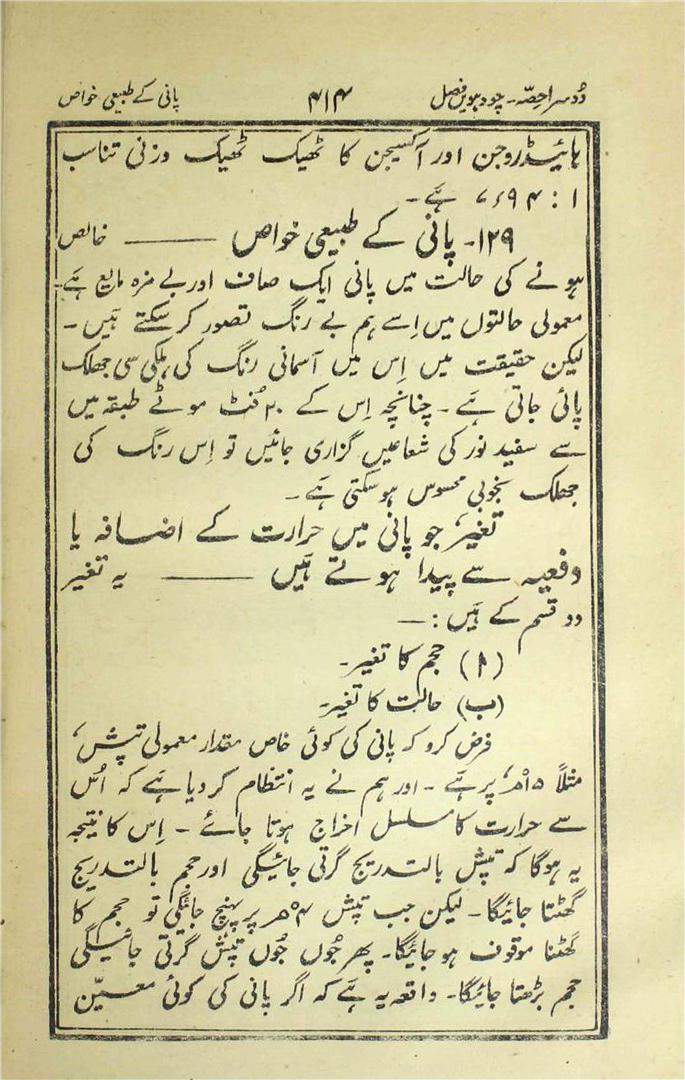 دُوسرا حِصّہ۔ چودہویں فصل ۴۱۴ پانی کے طبیعی خواص
ہائیڈروجن اور آکسیجن کا ٹھیک ٹھیک وزنی تناسب
۱ : ۷٫۹۴ ہے۔
۱۲۹۔ پانی کے طبیعی خواص ——— خالص
ہونے کی حالت میں پانی ایک صاف اور بے مزہ مایع ہے۔
معمولی حالتوں میں اِسے ہم بے رنگ تصور کر سکتے ہیں۔
لیکن حقیقت میں اِس میں آسمانی رنگ کی ہلکی سی جھلک
پائی جاتی ہے۔ چنانچہ اِس کے ۲۰ فُٹ موٹے طبقہ میں
سے سفید نور کی شعاعیں گزاری جائیں تو اِس رنگ کی
جھلک بخوبی محسوس ہو سکتی ہے۔
تغیر، جو پانی میں حرارت کے اضافہ یا
دفعیہ سے پیدا ہوتے ہیں ——— یہ تغیر
دو قسم کے ہیں :—
(ا) حجم کا تغیر۔
(ب) حالت کا تغیر۔
فرض کرو کہ پانی کی کوئی خاص مقدار معمولی تپش،
مثلاً ۱۵°مر، پر ہے۔ اور ہم نے یہ انتظام کر دیا ہے کہ اُس
سے حرارت کا مسلسل اخراج ہوتا جائے۔ اِس کا نتیجہ
یہ ہوگا کہ تپش بالتدریج گرتی جائیگی اور حجم بالتدریج
گھٹتا جائیگا۔ لیکن جب تپش ۴°مر پر پہنچ جائیگی تو حجم کا
گھٹنا موقوف ہو جائیگا۔ پھر جُوں جُوں تپش گرتی جائیگی
حجم بڑھتا جائیگا۔ واقعہ یہ ہے کہ اگر پانی کی کوئی معیّن